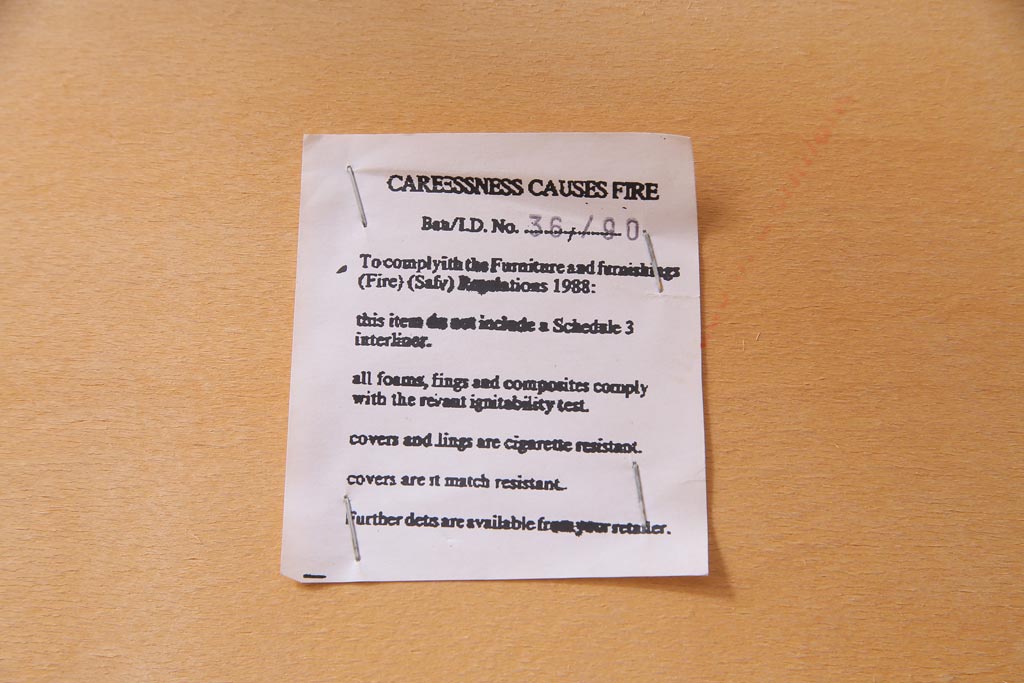 CAREESSNESS CAUSES FIRE
Bau/I.D. No. 36/90
To complyith the Furniture and furnishings
(Fire) (Safv) Regulations 1988:
this item do not include a Schedule 3
interliner.
all foams, fings and composites comply
with the revant ignitability test.
covers and lings are cigarette resistant.
covers are it match resistant.
Further dets are available from your retailer.